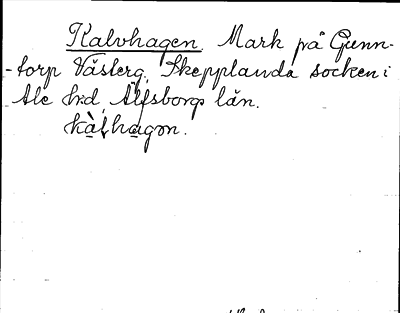 Kalvhagen. Mark på Gunn-
-torp Västerg. Skepplanda socken i
Ale hrd, Älfsborgs län.